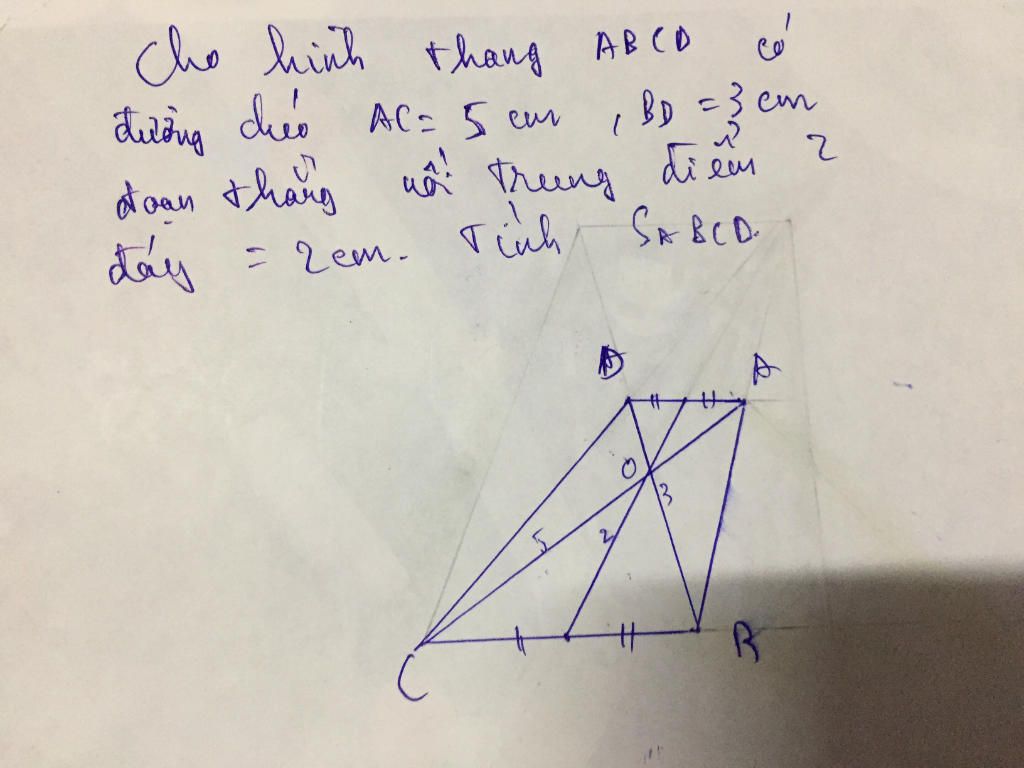 Cho hình thang ABCD có
đường chéo AC = 5 cm, BD = 3 cm
đoạn thẳng nối trung điểm 2
đáy = 2 cm. Tính SABCD.
D A
O
3
5 2
C B